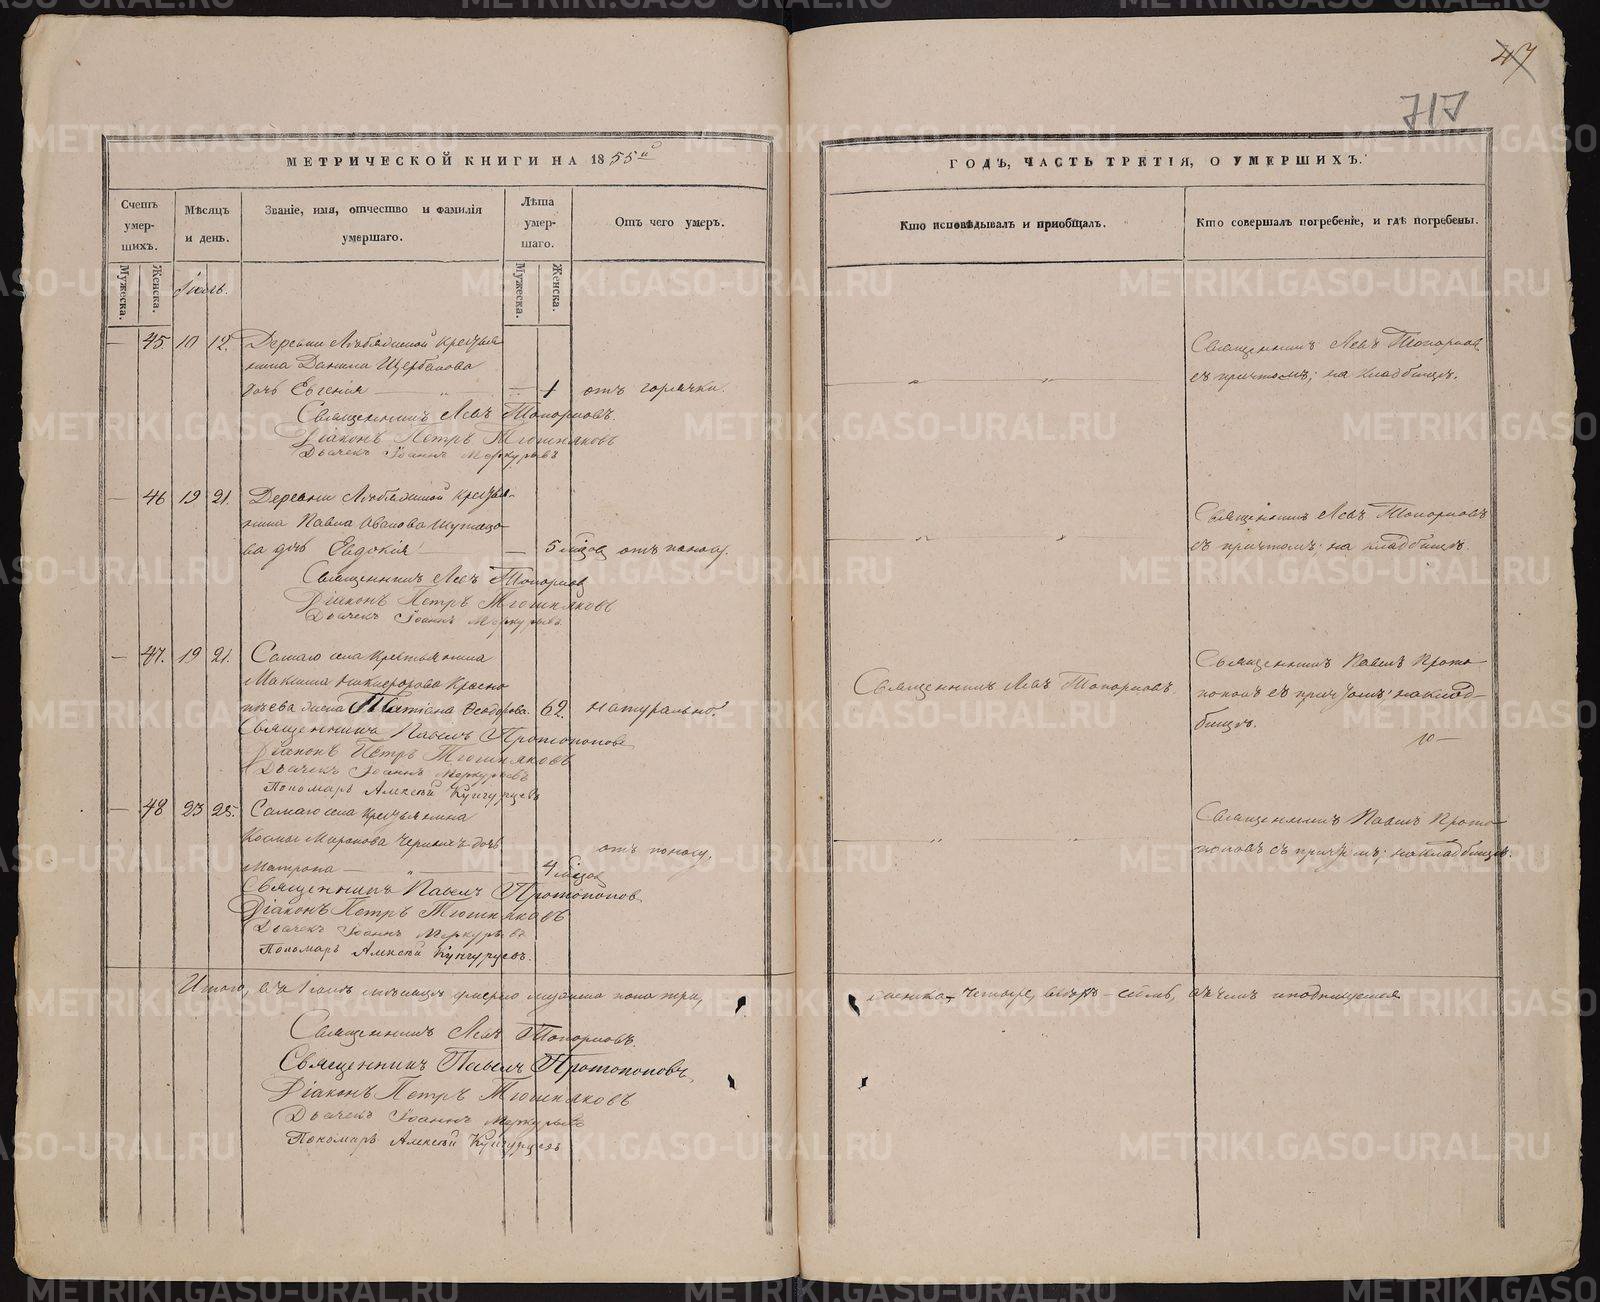 47
717
МЕТРИЧЕСКОЙ КНИГИ НА 1855й
ГОДЪ, ЧАСТЬ ТРЕТІЯ, О УМЕРШИХЪ.
Счетъ умерших.
Мѣсяцъ и день.
Званіе, имя, отчество и фамилія умершаго.
Лѣта умершаго.
Отъ чего умеръ.
Кто исповѣдывалъ и пріобщалъ.
Кто совершалъ погребеніе, и гдѣ погребены.
Мужеска.
Женска.
Мужеска.
Женска.
Іюль.
— 45. 10 12. Деревни крестья
нина Данила Щербакова
дочь Евгенія — 1 отъ горячки.
Священникъ Левъ Топорковъ
съ причтомъ; на кладбищѣ.
Священникъ Левъ Топорковъ.
Діаконъ Петръ Тюшняковъ
Дьячекъ Іоаннъ Меркурьевъ
— 46 19 21. Деревни крестья-
нина Павла Иванова
ва дочь Евдокія — 5 мѣсяц отъ поносу.
Священникъ Левъ Топорковъ
съ причтомъ; на кладбищѣ.
Священникъ Левъ Топорков
Діаконъ Петръ Тюшняковъ
Дьячекъ Іоаннъ Меркурьевъ
— 47. 19 21. Самаго села крестьянина
Максима Никифорова Красно
пѣева жена Татіана Ѳеодорова. 62. натурально.
Священникъ Левъ Топорковъ.
Священникъ Павелъ Прото
поповъ съ причтомъ; на клад-
бищѣ.
Священникъ Павелъ Протопоповъ
Діаконъ Петръ Тюшняковъ
Дьячекъ Іоаннъ Меркурьевъ
Пономарь Алексѣй Кунгурцевъ
— 48 23 25. Самаго села крестьянина
Космы Миронова дочь
Матрона — 4 мѣсяц отъ поносу.
Священникъ Павелъ Прото
поповъ съ причтомъ; на кладбищѣ.
Священникъ Павелъ Протопопов
Діаконъ Петръ Тюшняковъ
Дьячекъ Іоаннъ Меркурьевъ
Пономарь Алексѣй Кунгурцевъ.
Итого, въ Іюлѣ мѣсяцѣ умерло мужеска пола три,
женска — четыре, всѣхъ — семь, въ чемъ и подпишемся
Священникъ Левъ Топорковъ.
Священникъ Павелъ Протопоповъ
Діаконъ Петръ Тюшняковъ
Дьячекъ Іоаннъ Меркурьевъ
Пономарь Алексѣй Кунгурцевъ
METRIKI.GASO-URAL.RU